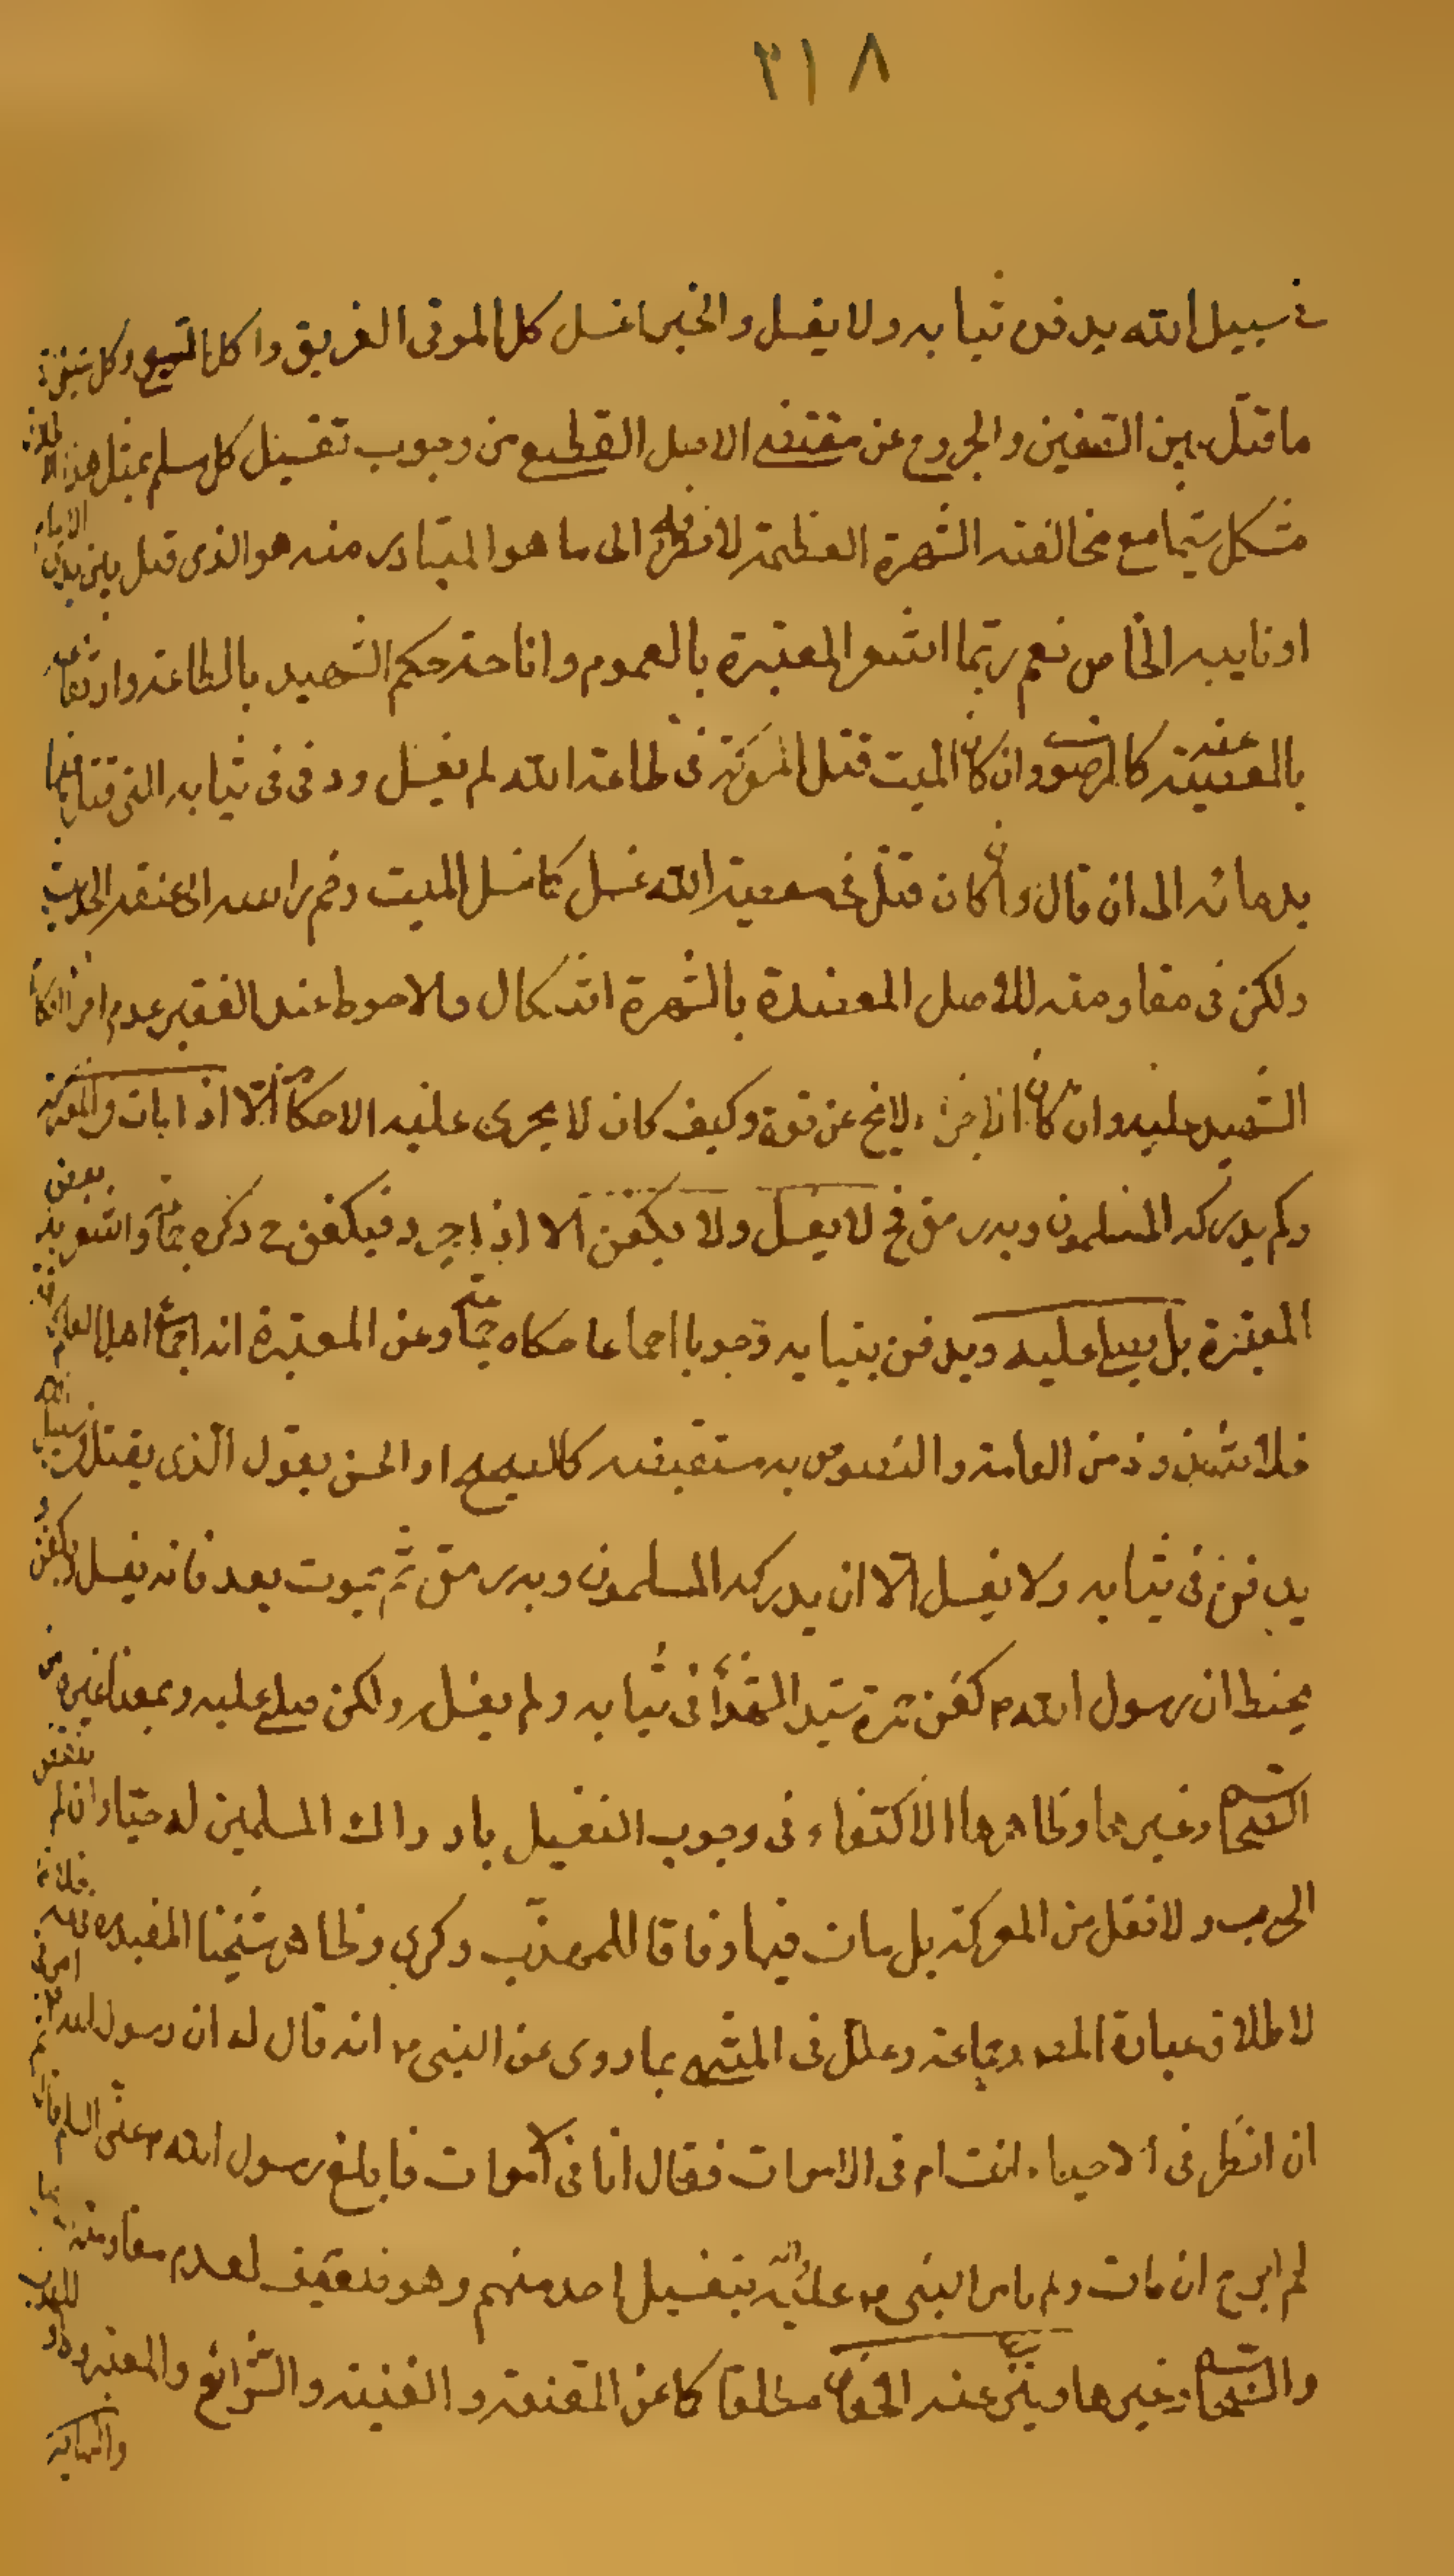 ٣١٨
في سبيل الله يدفن ثيابه ولا يغسل والخبر اغسل كل الموتى الغريق واكل السبع وكل شيء الا
ما قتل بين الصفين والخروج عن مقتضى الاصل القطعي من وجوب تغسيل كل مسلم بمثل هذا الاطلاق
مشكل سيما مع مخالفته الشهرة العظيمة لا الى ما هو المتبادر منه هو الذي قتل بين يدي الامام
او نايبه الخاص نعم ربما اشعر المعتبرة بالعموم واناحة حكم الشهيد بالطاعة وارتفاعه
بالمعصية كالرضوي وان كان الميت قتل المعركة في طاعة الله لم يغسل ودفن في ثيابه التي قتل فيها
بدمائه الى ان قال وان كان قتل في معصية الله غسل كما يغسل الميت وضم راسه الى عنقه الحديث
ولكن في مقاومته للاصل المعتضدة بالشهرة اشكال والاحوط عند الفقير عدم اجراء احكام
الشهيد عليه وان كان الاجراء لا يخ عن قوة وكيف كان لا يجرى عليه الاحكام الا اذا مات في المعركة
ولم يدركه المسلمون وبه رمق فح لا يغسل ولا يكفن الا اذا جرد فيكفن ح ذكره جماعة واشعر به بعض
المعتبرة بل يصلى عليه ويدفن بثيابه وجوبا اجماعا حكاه جماعة وعن المعتبرة انه اجماع اهل العلم
خلا شذوذ من العامة والنصوص به مستفيضه كالصحيح او الحسن يقول الذى يقتل في سبيل الله
يدفن في ثيابه ولا يغسل الا ان يدركه المسلمون وبه رمق ثم يموت بعد فانه يغسل ويكفن و
يحنط ان رسول الله ص كفن حمزة سيد الشهداء في ثيابه ولم يغسل ولكن صلى عليه وبمعناه غيره من
الصحاح وغيرها وظاهرها الاكتفاء في وجوب التغسيل بادراك المسلمين له حيا وان لم تنقض
الحرب ولا نقل من المعركة بل مات فيها وفاقا للمهذب وكرى وظاهر شيخنا المفيد خلافا
لاطلاق عبارة المص وجماعة وعلل في المنتهى بما روى عن النبي ص انه قال له ان رسول الله ص امرني
ان انظر في الاحياء انت ام في الاموات فقال انا في الاموات فابلغ رسول الله ص عنى السلم قال ثم
لم ابرح ان مات ولم يامر النبي ص بتغسيل احد منهم وهو ضعيف لعدم مقاومته لما
والصحاح وغيرها عنه الخفان مطلقا كما عن المقنعة والغنية والشرائع والمعتبر
والنهاية